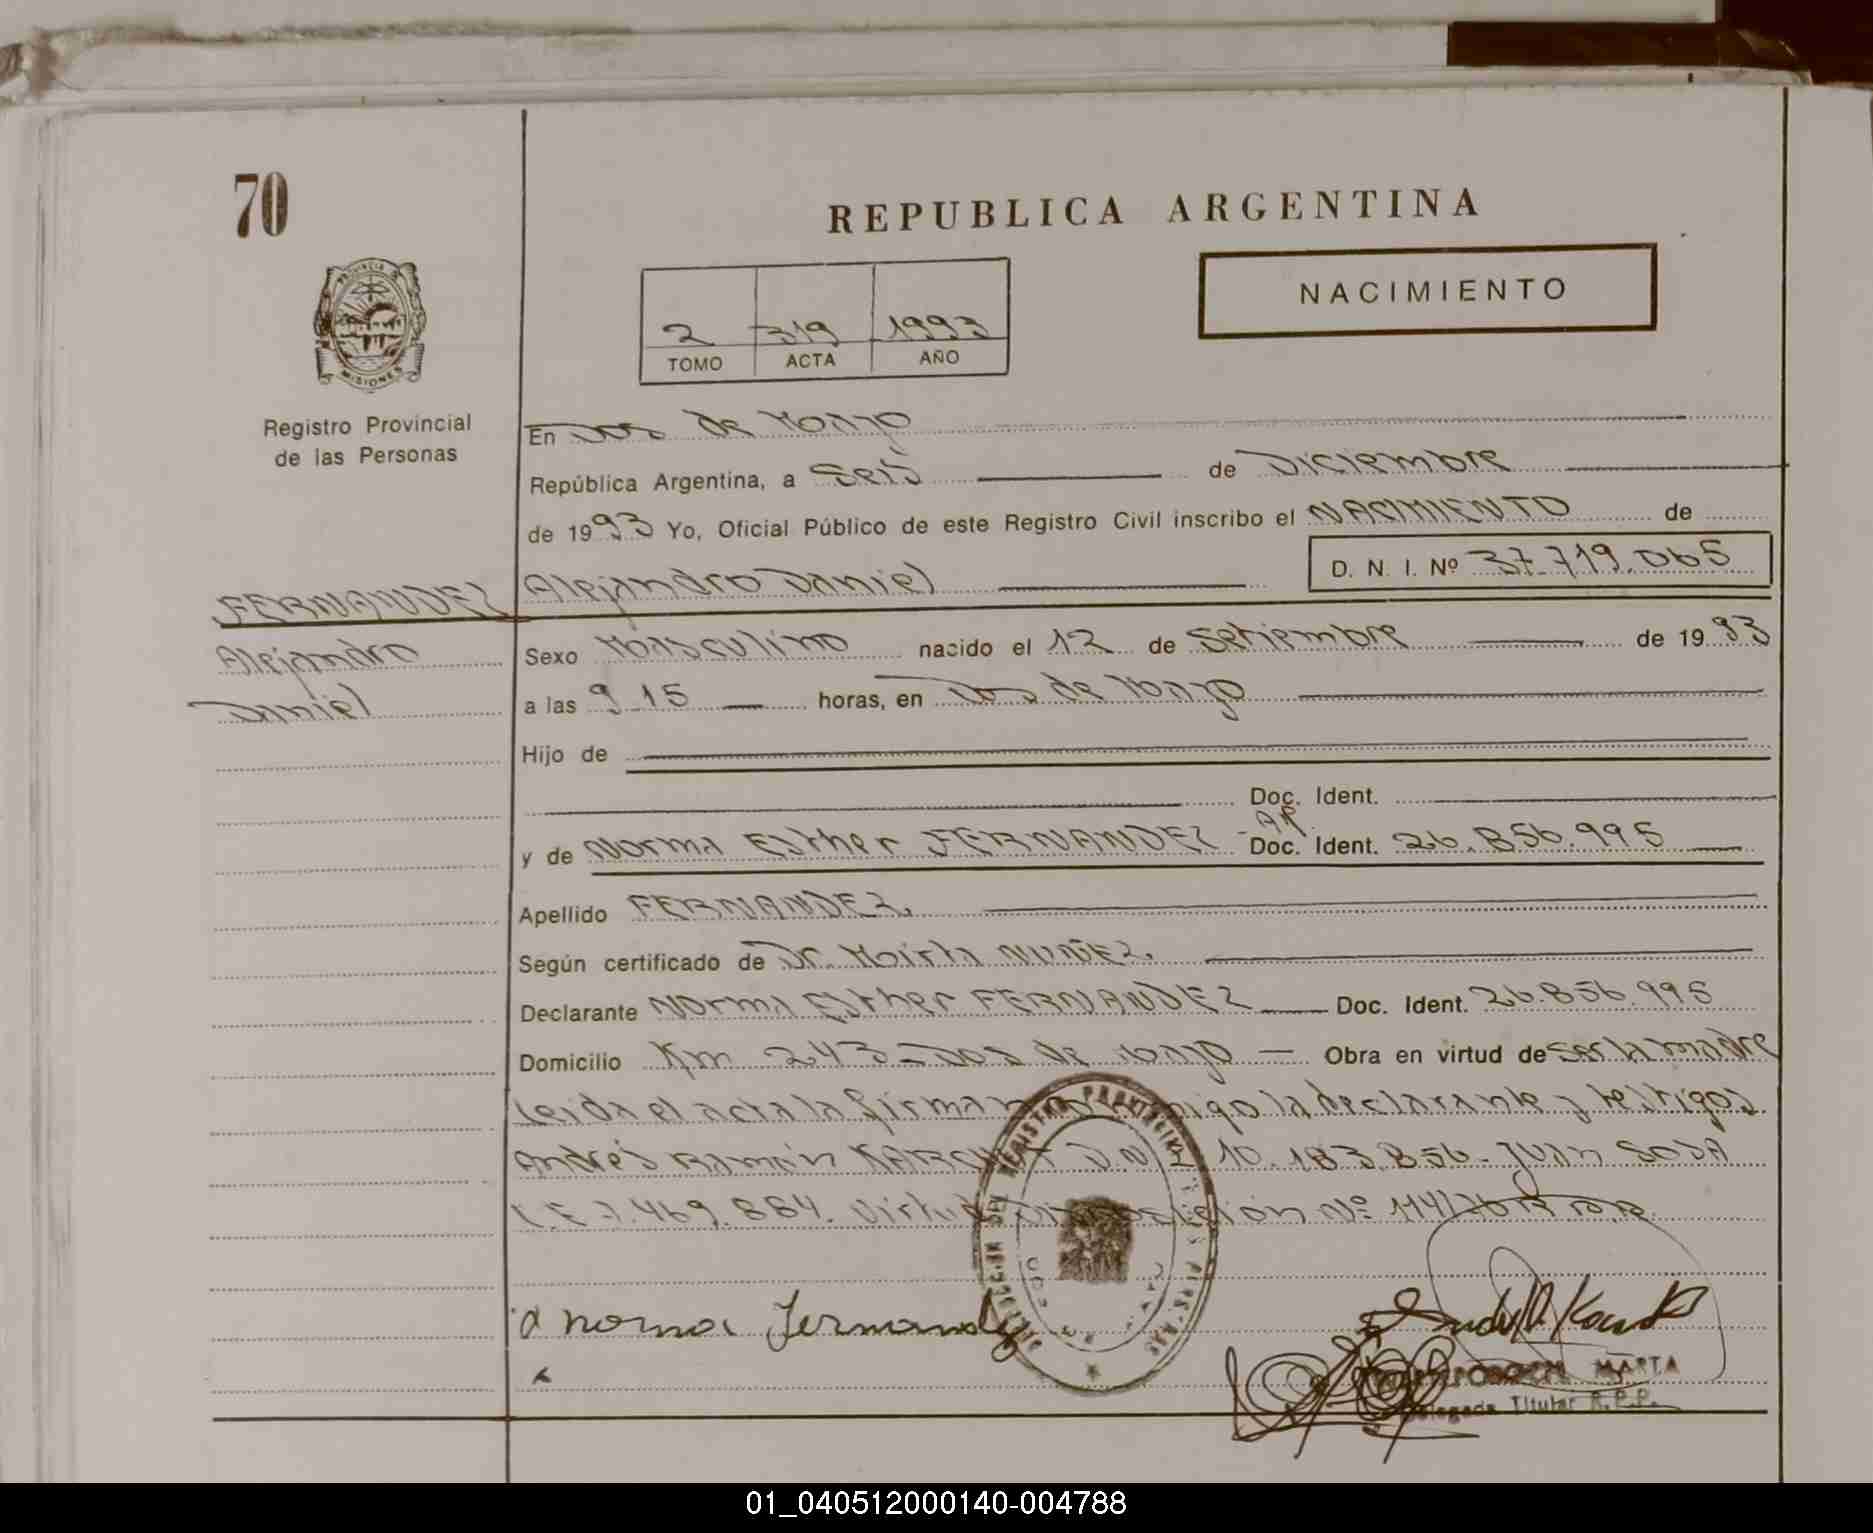 70
REPUBLICA ARGENTINA
PROVINCIA DE
MISIONES
NACIMIENTO
2 319 1993
TOMO ACTA AÑO
Registro Provincial
de las Personas
En Dos de Mayo
República Argentina, a Seis de Diciembre
de 1993 Yo, Oficial Público de este Registro Civil inscribo el NACIMIENTO de
FERNANDEZ Alejandro Daniel D. N. I. Nº 37.719.065
Alejandro
Daniel
Sexo Masculino nacido el 12 de Setiembre de 1993
a las 9 15 horas, en Dos de Mayo
Hijo de
Doc. Ident.
y de Norma Esther FERNANDEZ - AR. Doc. Ident. 26.856.995
Apellido FERNANDEZ.
Según certificado de Dr. Mirta NUÑEZ.
Declarante Norma Esther FERNANDEZ Doc. Ident. 26.856.995
Domicilio Km 243 - Dos de Mayo Obra en virtud de ser la madre
Leida el acta la firman la declarante y testigos
Andrés Ramón D.N.I. 10.183.856 - Juan SOSA
7.469.884. Virtud Disposición Nº
REGISTRO PROVINCIAL
DE LAS PERSONAS
Norma Fernandez
MARTA
Delegada Titular R.P.P.
01_040512000140-004788